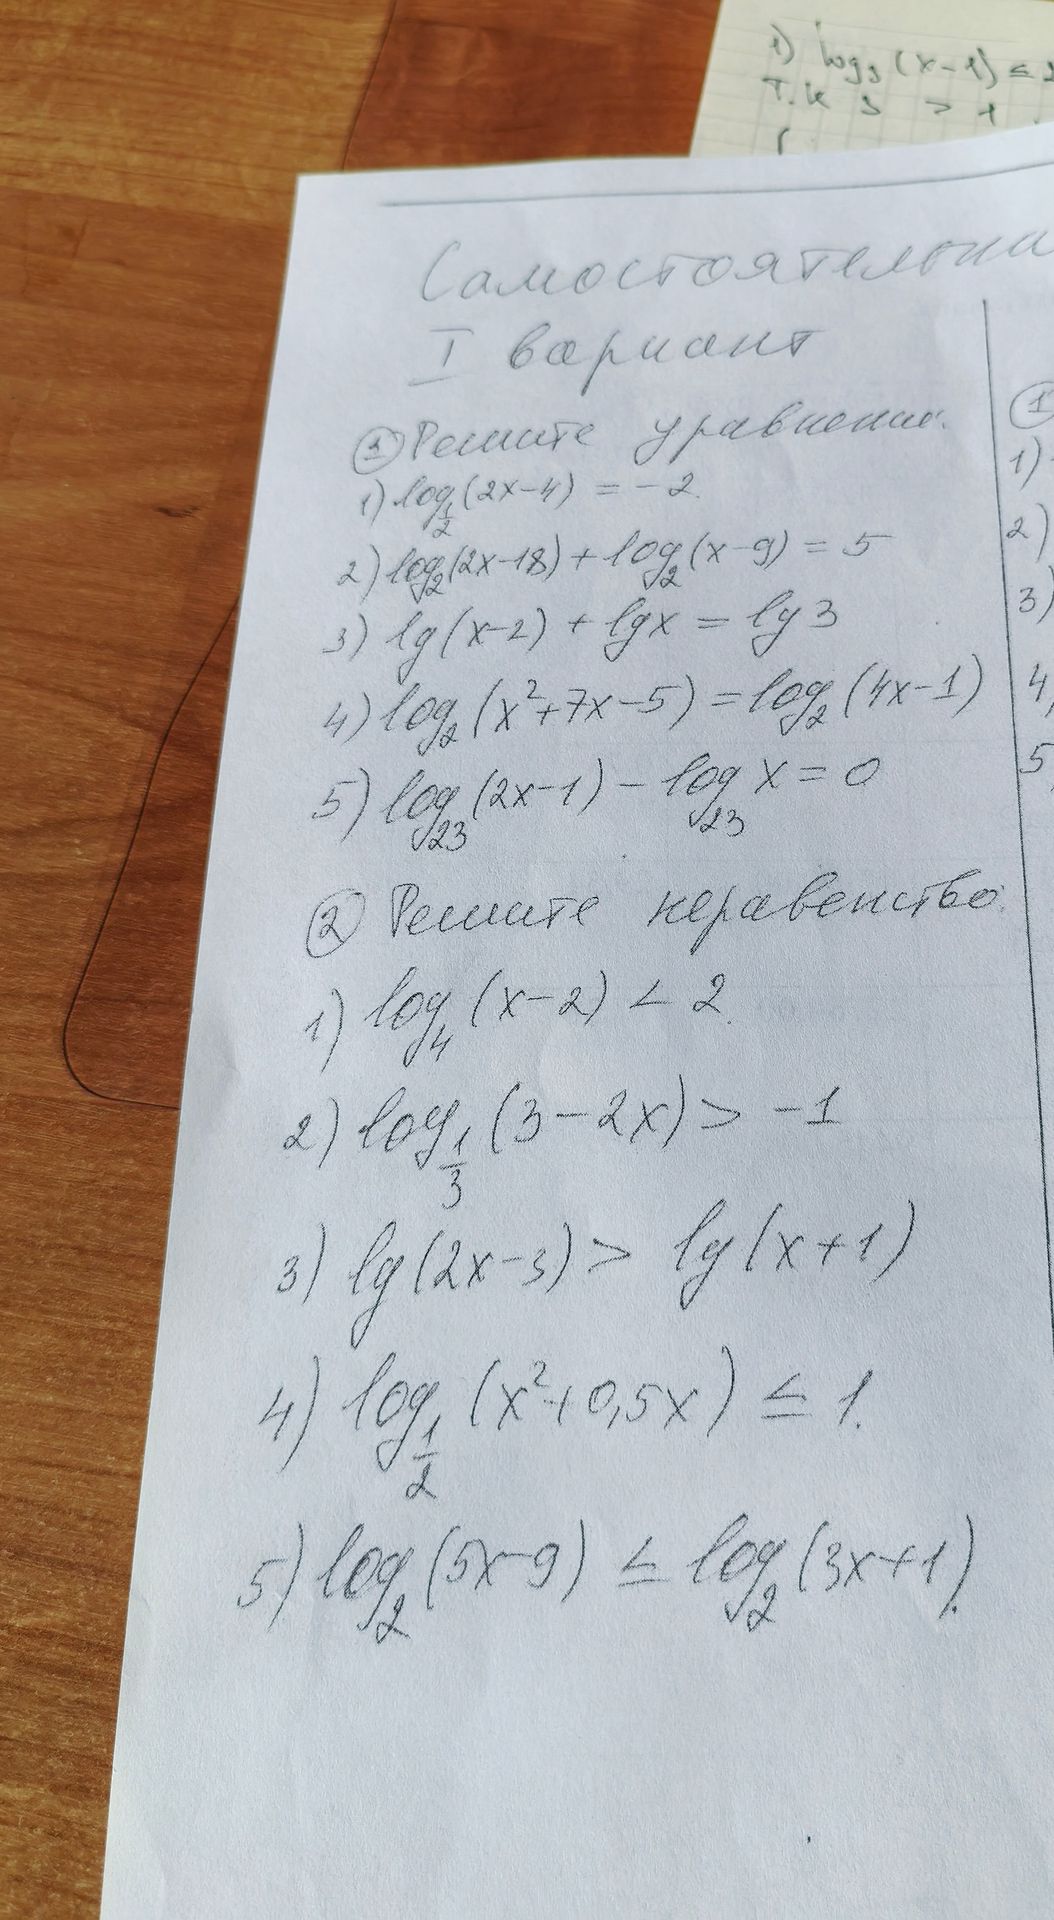 1) log₃(x-1) ≤
т.к 3 > 1
Самостоятельна
I вариант
① Решите уравнение.
1) log_{1/2}(2x-4) = -2.
2) log₂(2x-18) + log₂(x-9) = 5
3) lg(x-2) + lgx = lg3
4) log₂(x²+7x-5) = log₂(4x-1)
5) log₂₃(2x-1) - log₂₃ x = 0
② Решите неравенство.
1) log₄(x-2) < 2.
2) log_{1/3}(3-2x) > -1
3) lg(2x-3) > lg(x+1)
4) log_{1/2}(x²+0,5x) ≤ 1.
5) log₂(5x-9) ≤ log₂(3x+1).
①
1)
2)
3)
4)
5